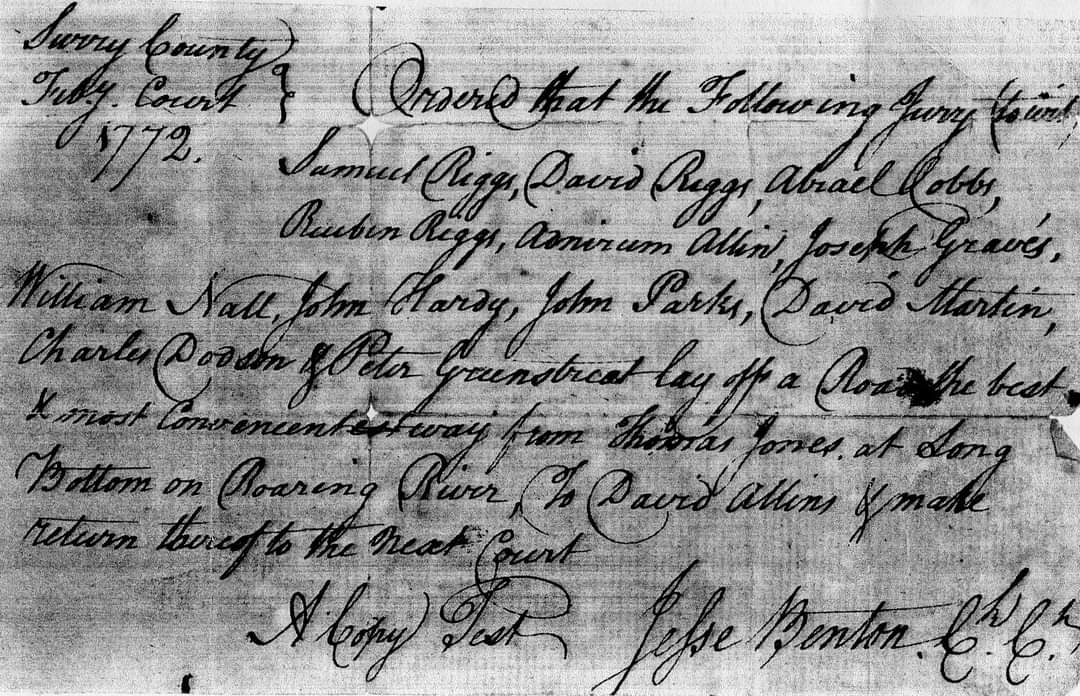 Surry County
Feby. Court
1772.
Ordered that the Following Jury (to wit)
Samuel Riggs, David Riggs, Abiael Cobbs,
Reuben Riggs, Adnirum Allin, Joseph Graves,
William Nall, John Hardy, John Parks, David Martin,
Charles Dodson & Peter Greenstreat lay off a Road the best
& most Conveneent way from Thomas Jones. at Long
Bottom on Roaring River, To David Allins & make
return thereof to the Next Court
A Copy Test
Jesse Benton. Ck. C.